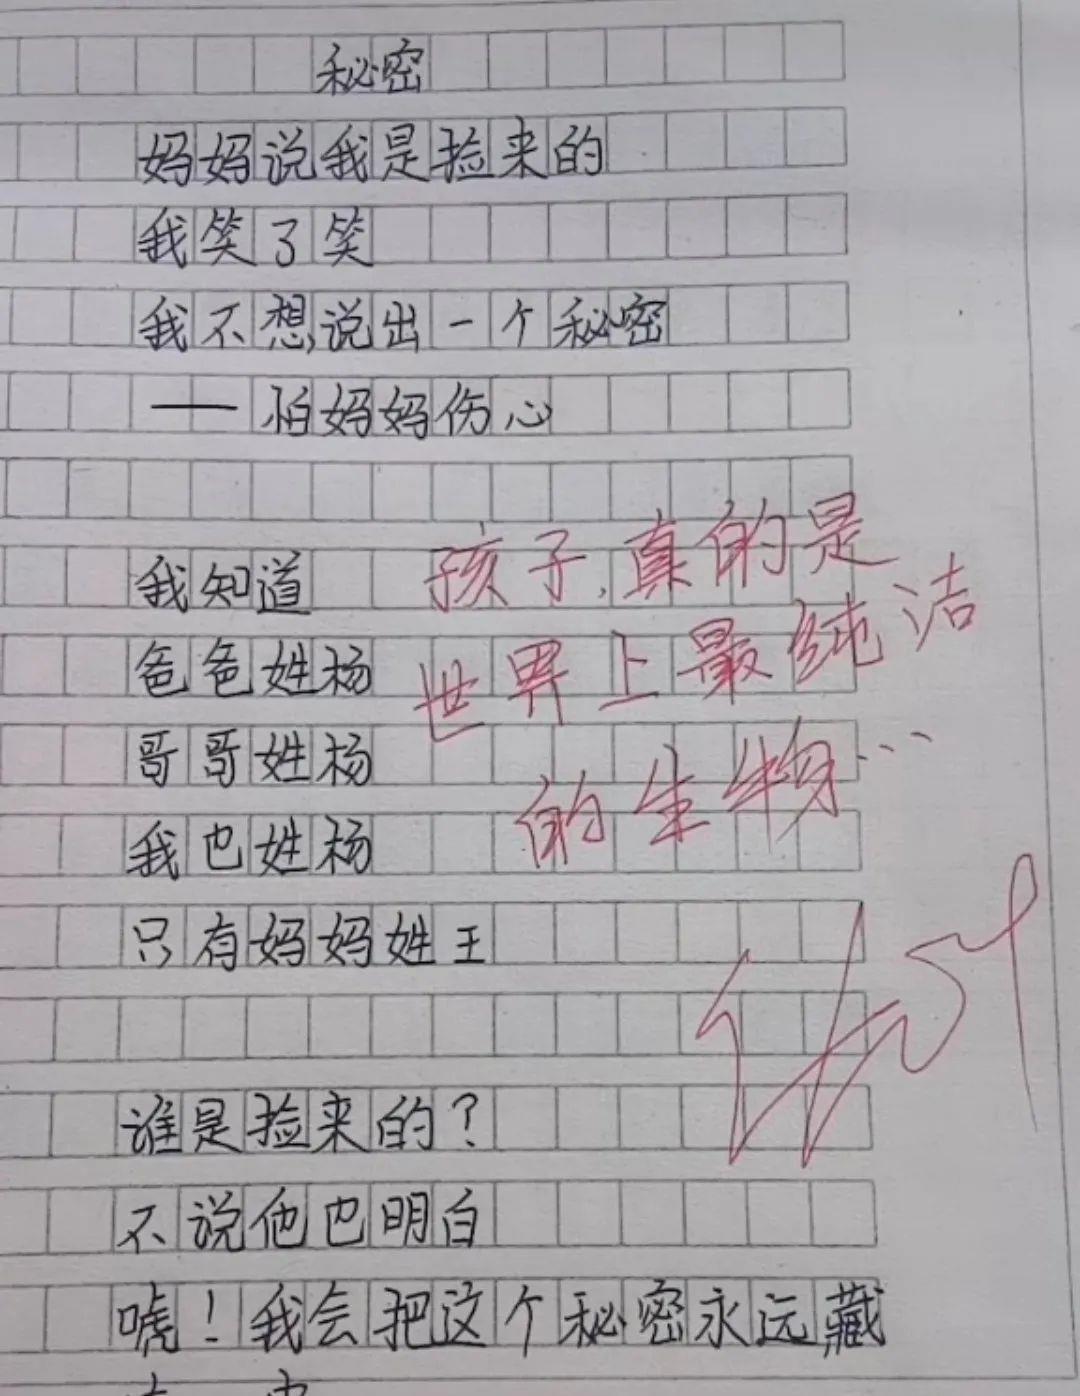 秘密
妈妈说我是捡来的
我笑了笑
我不想说出一个秘密
——怕妈妈伤心
我知道
爸爸姓杨
哥哥姓杨
我也姓杨
只有妈妈姓王
孩子,真的是
世界上最纯洁
的生物…
谁是捡来的?
不说他也明白
唬!我会把这个秘密永远藏